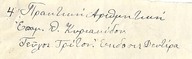 4 Πρακτική Αριθμητική
Εὐαγ. Θ. Κυριανίδου
Τεῦχος Τρίτον Ἔκδοσις Δευτέρα